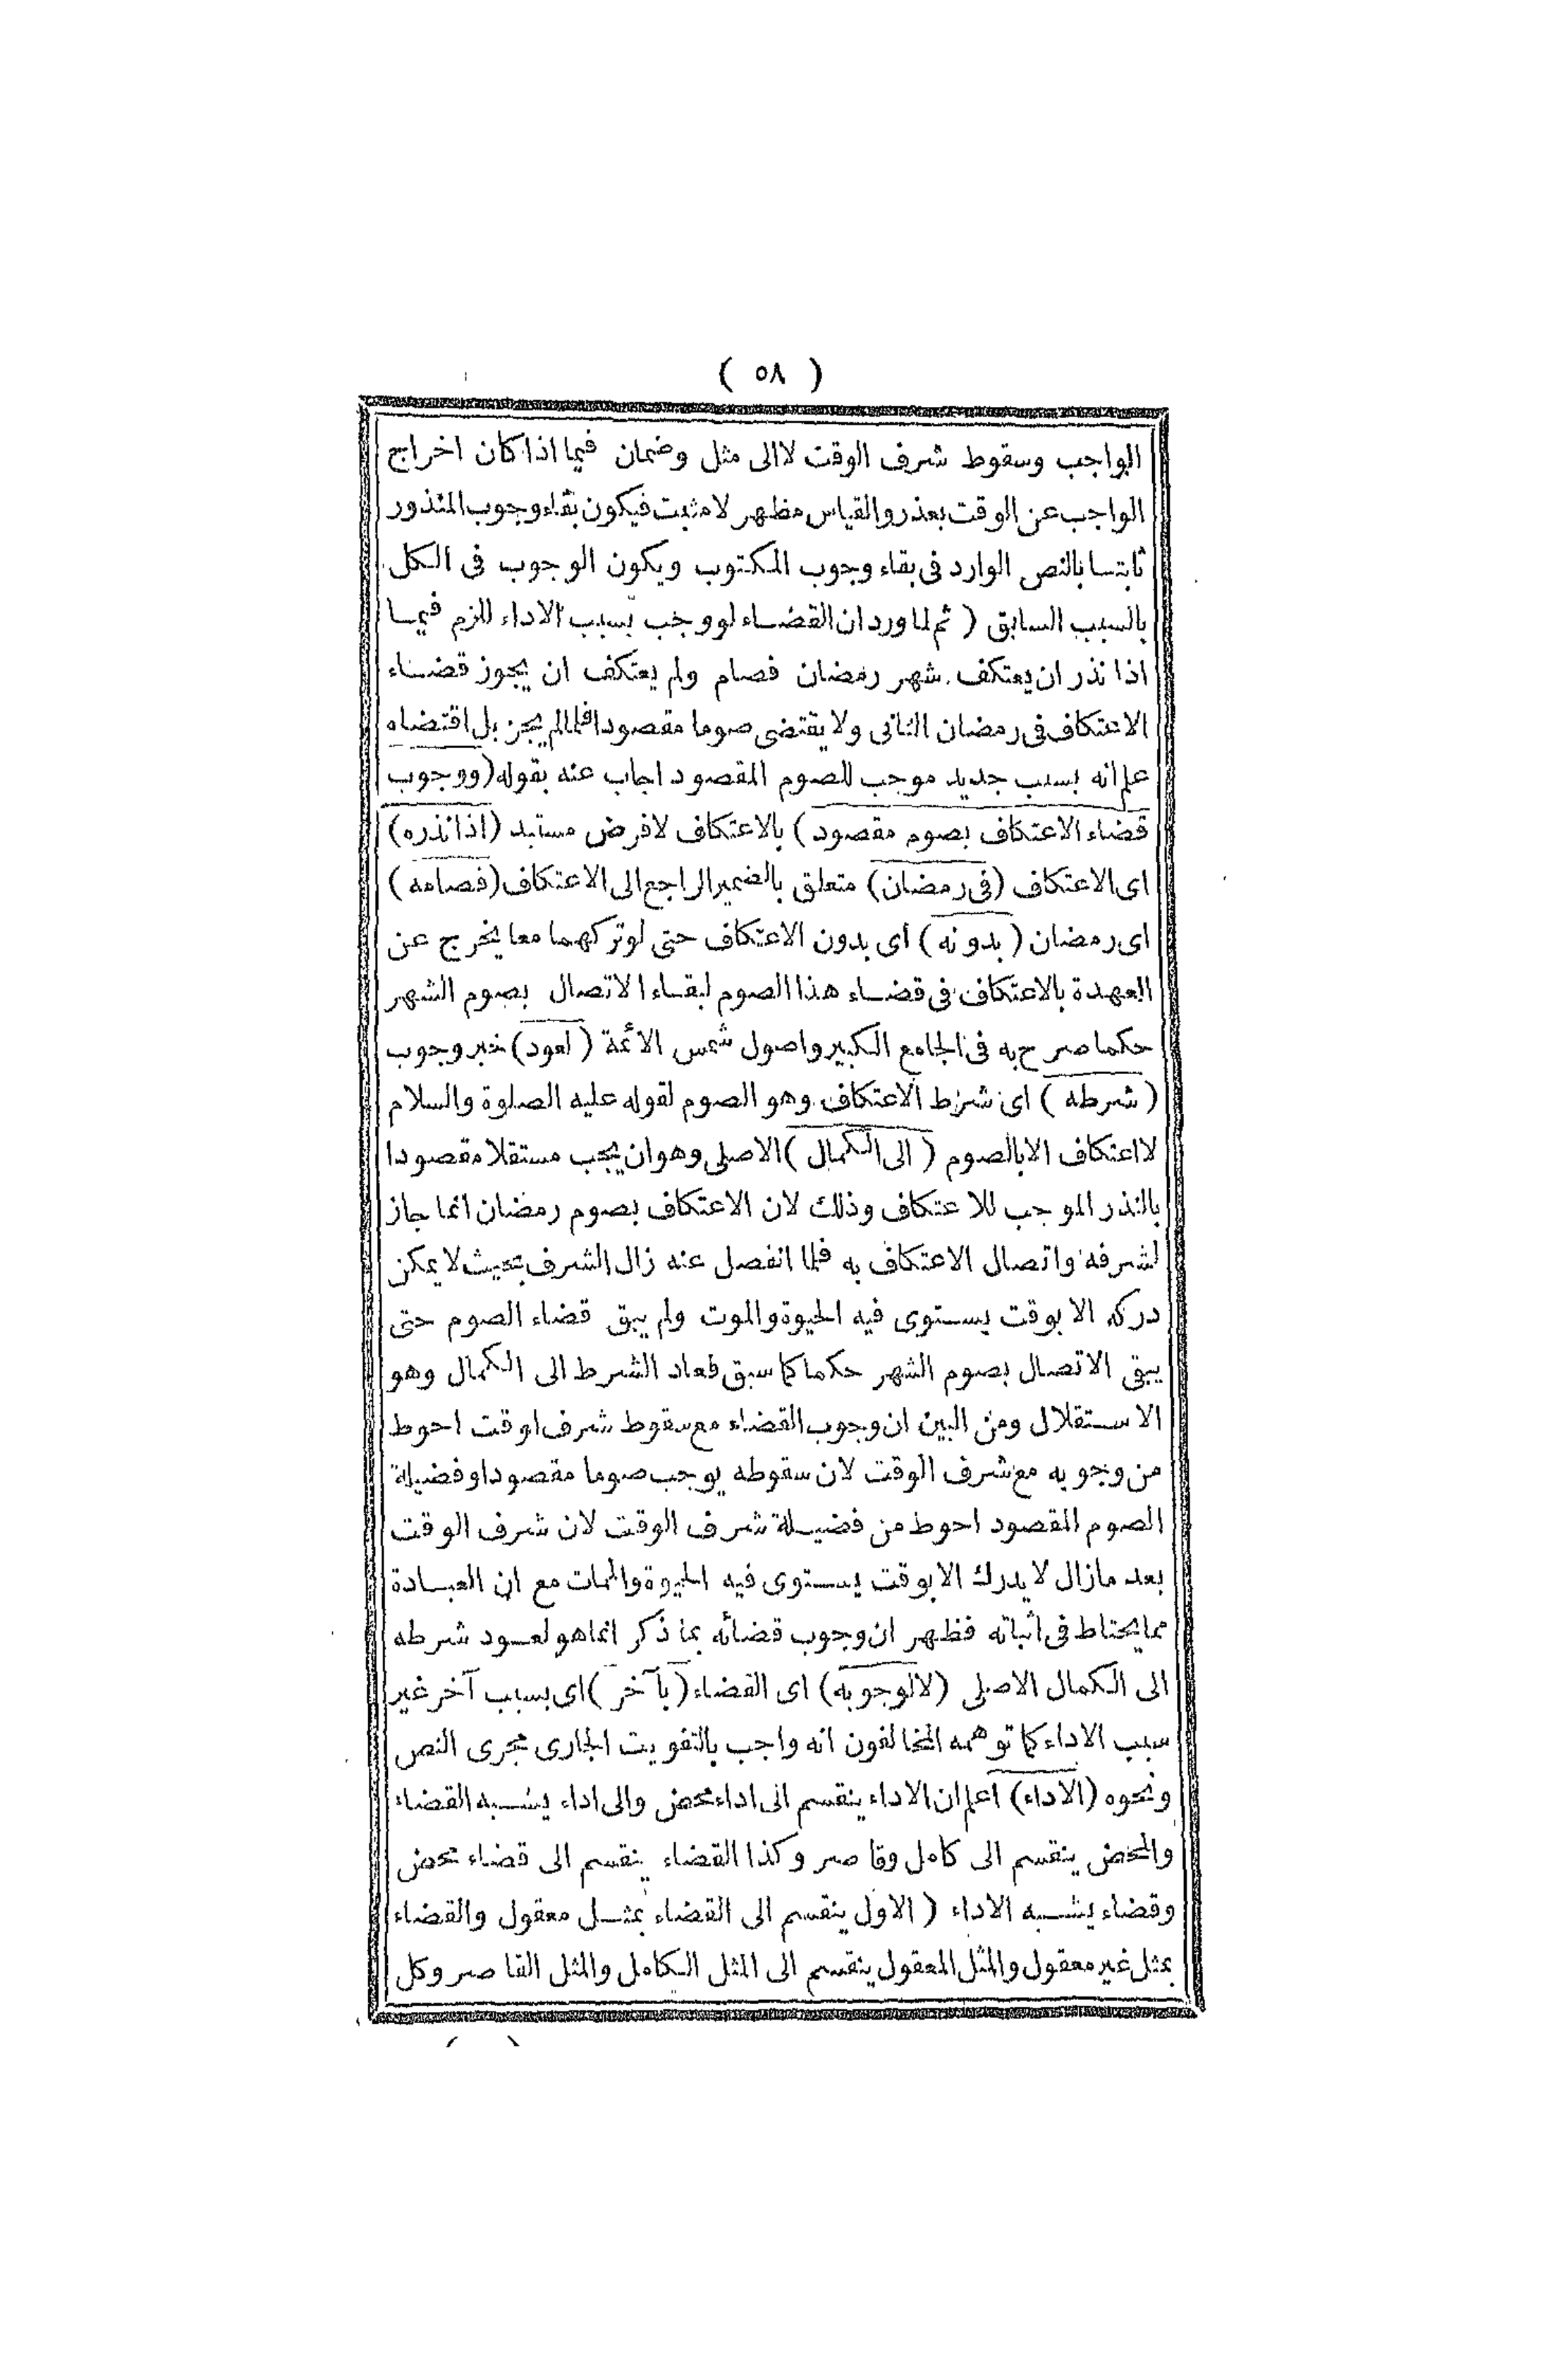 ( ٥٨ )
الواجب وسقوط شرف الوقت لا الى مثل وضمان فيما اذا كان اخراج
الواجب عن الوقت بعذر والقياس مظهر لا مثبت فيكون بقاء وجوب المنذور
ثابتا بالنص الوارد فى بقاء وجوب المكتوب ويكون الوجوب فى الكل
بالسبب السابق ( ثم لما ورد ان القضاء لو وجب بسبب الاداء للزم فيما
اذا نذر ان يعتكف شهر رمضان فصام ولم يعتكف ان يجوز قضاء
الاعتكاف فى رمضان الثانى ولا يقتضى صوما مقصودا فلما لم يجز بل اقتضاه
علم انه بسبب جديد موجب للصوم المقصود اجاب عنه بقوله ( ووجوب
قضاء الاعتكاف بصوم مقصود ) بالاعتكاف لا فرض مستبد ( اذا نذره )
اى الاعتكاف ( فى رمضان ) متعلق بالضمير الراجع الى الاعتكاف ( فصامه )
اى رمضان ( بدونه ) اى بدون الاعتكاف حتى لو تركهما معا يخرج عن
العهدة بالاعتكاف فى قضاء هذا الصوم لبقاء الاتصال بصوم الشهر
حكما صرح به فى الجامع الكبير واصول شمس الائمة ( لعود ) خبر وجوب
( شرطه ) اى شرط الاعتكاف وهو الصوم لقوله عليه الصلوة والسلام
لا اعتكاف الا بالصوم ( الى الكمال ) الاصلى وهو ان يجب مستقلا مقصودا
بالنذر الموجب للاعتكاف وذلك لان الاعتكاف بصوم رمضان انما جاز
لشرفه واتصال الاعتكاف به فلما انفصل عنه زال الشرف بحيث لا يمكن
دركه الا بوقت يستوى فيه الحيوة والموت ولم يبق قضاء الصوم حتى
يبقى الاتصال بصوم الشهر حكما كما سبق فعاد الشرط الى الكمال وهو
الاستقلال ومن البين ان وجوب القضاء مع سقوط شرف اوقت احوط
من وجوبه مع شرف الوقت لان سقوطه يوجب صوما مقصودا وفضيلة
الصوم المقصود احوط من فضيلة شرف الوقت لان شرف الوقت
بعد ما زال لا يدرك الا بوقت يستوى فيه الحيوة والممات مع ان العبادة
مما يحتاط فى اثباته فظهر ان وجوب قضائه بما ذكر انما هو لعود شرطه
الى الكمال الاصلى ( لا لوجوبه ) اى القضاء ( بآخر ) اى بسبب آخر غير
سبب الاداء كما توهمه المخالفون انه واجب بالتفويت الجارى مجرى النص
ونحوه ( الاداء ) اعلم ان الاداء ينقسم الى اداء محض والى اداء يشبه القضاء
والمحض ينقسم الى كامل وقاصر وكذا القضاء ينقسم الى قضاء محض
وقضاء يشبه الاداء ( الاول ينقسم الى القضاء بمثل معقول والقضاء
بمثل غير معقول والمثل المعقول ينقسم الى المثل الكامل والمثل القاصر وكل